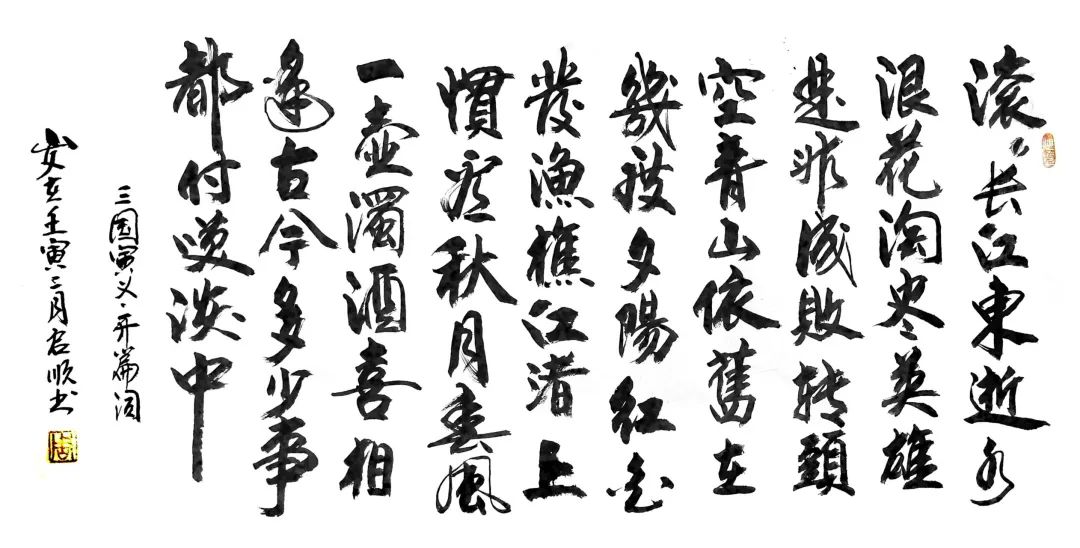 滚〻长江東逝水
浪花淘尽英雄
是非成敗转頭
空青山依舊在
幾度夕陽红白
发漁樵江渚上
慣看秋月春風
一壺濁酒喜相
逢古今多少事
都付笑谈中
三国演义·开篇词
岁在壬寅二月 顺书